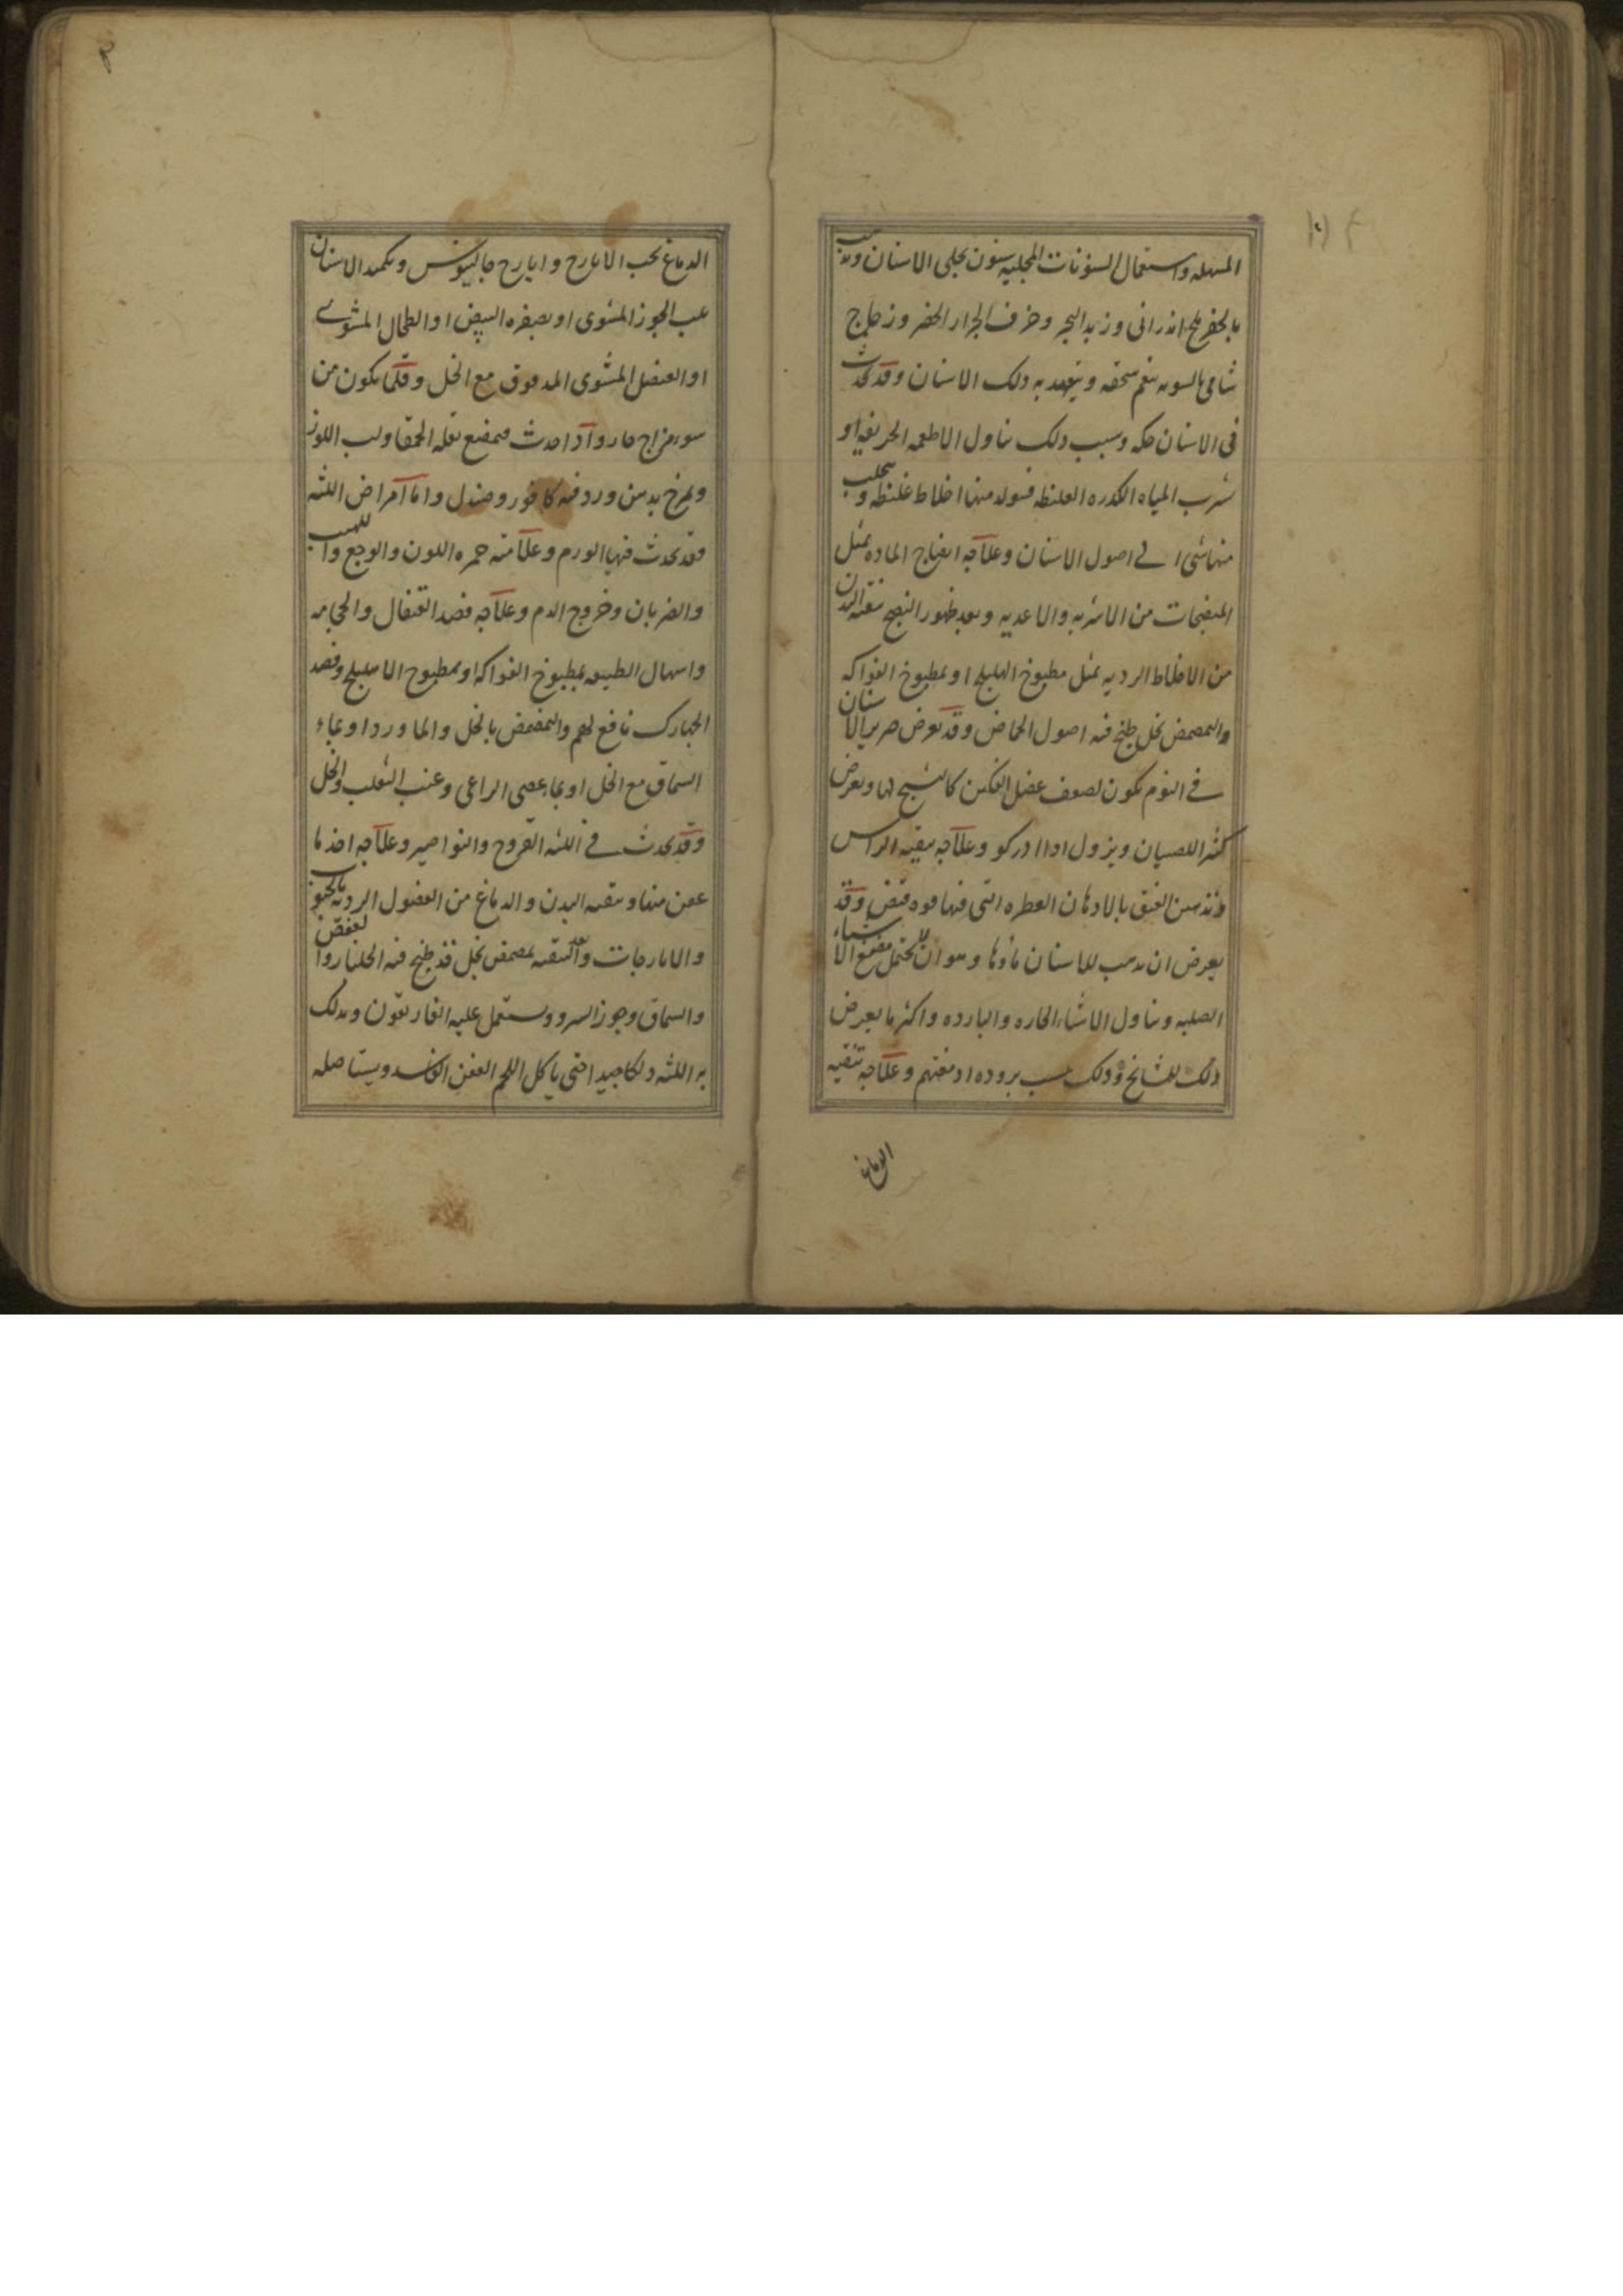 المسهله واستعمال السنونات المجليه سنون يجلى الاسنان ويذهب
بالحفر ملح اندرانى وزبد البحر وخزف الجرار الخضر وزجاج
شامى بالسويه ينعم سحقه ويتعهد به دلك الاسنان وقد يحدث
فى الاسنان حكه وسبب ذلك تناول الاطعمه الحريفه او
شرب المياه الكدره الغليظه فيتولد منها اخلاط غليظه ويتحلب
منها شئ الے اصول الاسنان وعلاجه انضاج الماده بمثل
المنضجات من الاشربه والاغذيه وبعد ظهور النضج تنقيه البدن
من الاخلاط الرديه بمثل مطبوخ الهليلج او بمطبوخ الفواكه
والتمضمض بخل طبخ فيه اصول الحماض وقد يعرض صرير الاسنان
فے النوم يكون لضعف عضل الفكين كالتشنج لها ويعرض
كثيرا للصبيان ويزول اذا ادركو وعلاجه تنقيه الراس
وتدهين العنق بالادهان العطره التى فيها قوه قبض وقد
يعرض ان يذهب للاسنان ماؤها وهو ان لا يحتمل مضغ الاشياء
الصلبه وتناول الاشياء الحاره والبارده واكثر ما يعرض
ذلك للمشايخ وذلك بسبب بروده ادمغتهم وعلاجه تنقيه
الدماغ
الدماغ بحب الايارج وايارج جالينوس وتكميد الاسنان
بلب الجوز المشوى او بصفره البيض او الطحال المشوے
او العنصل المشوى المدقوق مع الخل وقلما يكون من
سوء مزاج حار واذا حدث فيمضغ بقله الحمقا ولب اللوز
ويمرخ بدهن ورد فيه كافور وصندل واما امراض اللثه
فقد يحدث فيها الورم وعلامته حمره اللون والوجع واللهيب
والضربان وخروج الدم وعلاجه فصد القيفال والحجامه
واسهال الطبيعه بمطبوخ الفواكه او بمطبوخ الاهليلج وفصد
الجهارك نافع لهم والتمضمض بالخل والماورد او بماء
السماق مع الخل او بماء عصى الراعى وعنب الثعلب والخل
وقد يحدث فے اللثه القروح والنواصير وعلاجه اخذ ما
عفن منها وتنقيه البدن والدماغ من الفضول الرديه بالحبوب
والايارجات وبعد التنقيه يمضمض بخل قد طبخ فيه الجلنار والعفص
والسماق وجوز السرو ويستعمل عليه الفاريقون ويدلك
به اللثه دلكا جيدا حتى ياكل اللحم العفن الفاسد ويستاصله